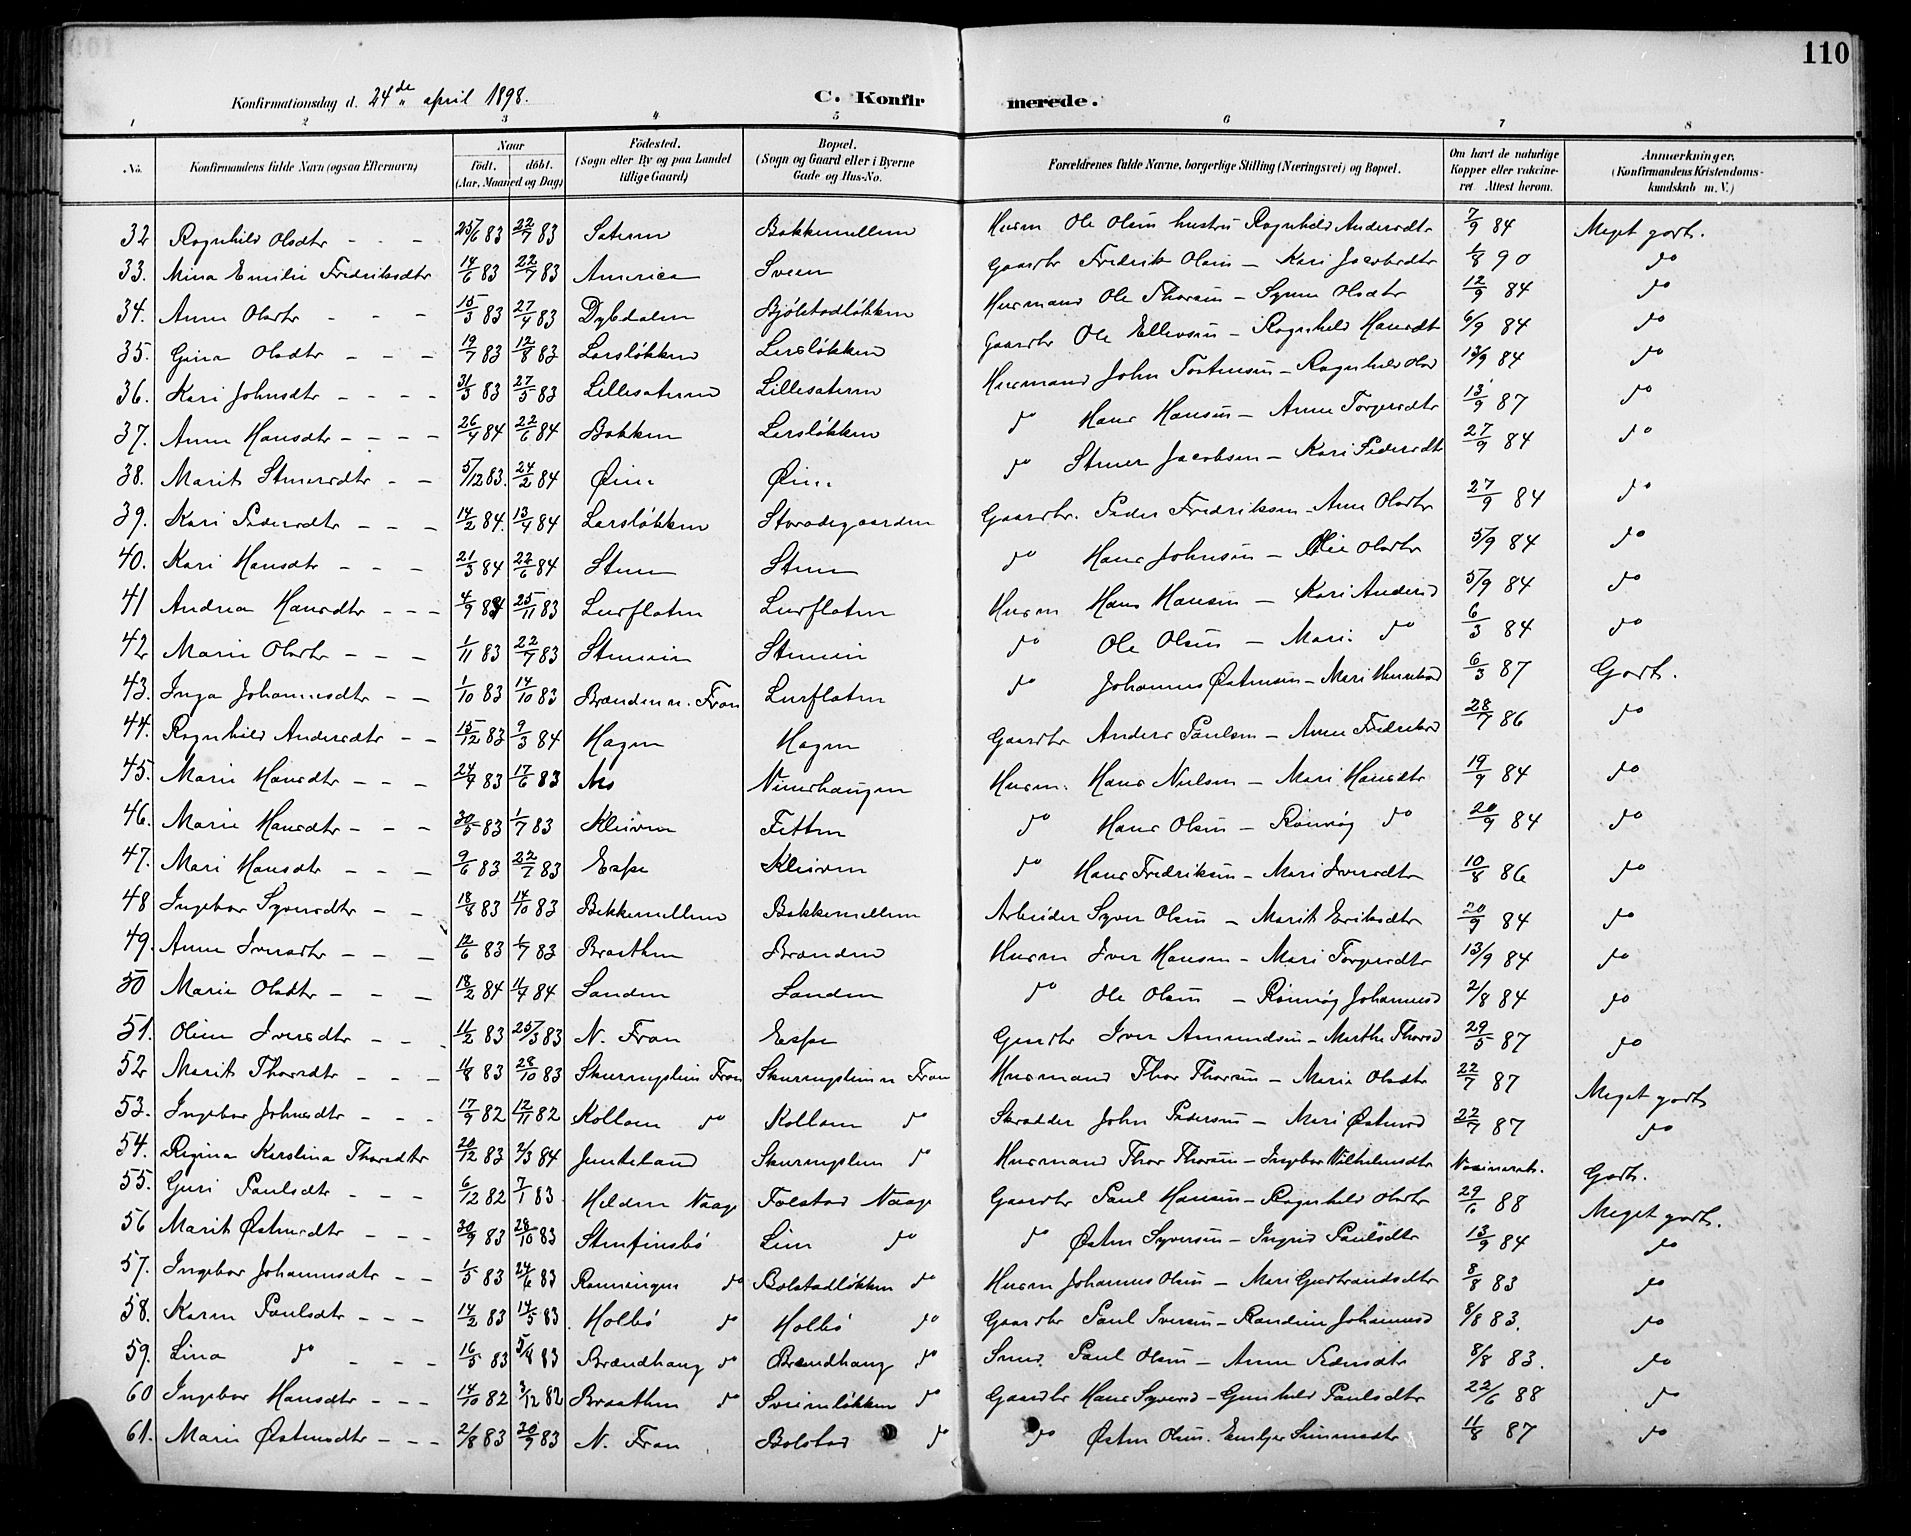 110
Konfirmationsdag d. 24de april 1898. C. Konfirmerede.
1 2 3 4 5 6 7 8
No. Konfirmandens fulde Navn (ogsaa Efternavn) Naar födt. döbt. (Aar, Maaned og Dag) Födested. (Sogn eller By og paa Landet tillige Gaard) Bopæl. (Sogn og Gaard eller i Byerne Gade og Hus-No. Forældrenes fulde Navne, borgerlige Stilling (Næringsvei) og Bopæl. Om havt de naturlige Kopper eller vakcineret Attest herom. Anmærkninger. (Konfirmandens Kristendomskundskab m. V.)
32 Ragnhild Olsdtr 25/6 83 22/7 83 Sateren Bakkemellem Husm Ole Olsen hustru Ragnhild Andersdtr 7/9 84 Meget godt.
33. Mina Emilie Fredriksdtr 14/6 83 22/7 83 America Sveen Gaardbr Fredrik Olsen - Kari Jacobsdtr 1/8 90 do
34. Anne Olsdtr 15/3 83 27/4 83 Dybdalen Bjölstadløkken Husmand Ole Thorsen - Synne Olsdtr 12/9 84 do
35. Gina Olsdtr 19/7 83 12/8 83 Larsløkken Larsløkken Gaardbr Ole Ellevsen - Ragnhild Hansdt 6/9 84 do
36. Kari Johnsdtr 31/3 83 27/5 83 Lillesateren Lillesateren Husmand John Fostensen - Ragnhild Olsd 13/9 84 do
37. Anne Hansdtr 26/4 84 22/6 84 Bakken Larsløkken do Hans Hansen - Anne Torgersdtr 13/9 87 do
38. Marit Stenersdtr 5/12 83. 24/2 84 Øien Øien do Stener Jacobsen - Kari Pedersdt 27/9 84 do
39. Kari Pedersdtr 14/2 84. 13/4 84 Larsløkken Storodegaarden Gaardbr. Peder Fredriksen - Anne Olsdtr 27/9 84 do
40. Kari Hansdtr 21/3 84 22/6 84 Steen Steen do Hans Johnsen - Olie Olsdtr 5/9 84 do
41 Andrea Hansdtr 4/9 83 25/11 83 Lurflaten Lurflaten Husm Hans Hansen - Kari Andersd 5/9 84 do
42 Marie Olsdtr 1/11 83 22/7 83 do Ole Olsen - Mari do 6/3 84 do
43. Inga Johannesdtr 1/10 83 14/10 83 Brænden n. Fron Lurflaten do Johannes Østensen - Mari 6/3 87 Godt.
44. Ragnhild Andersdtr 15/12 83 9/3 84 Hagen Hagen Gaardbr Anders Paulsen - Anne Fredriksd 28/7 86 do
45. Marie Hansdtr 24/4 83 17/6 83 Nordhaugen Husm. Hans Nielsen - Mari Hansdtr 19/9 84 do
46. Marie Hansdtr 30/5 83 1/7 83 Kleiven Fetten do Hans Olsen - Rønnøg do 20/9 84 do
47. Mari Hansdtr 9/6 83 22/7 83 Espe Kleiven do Hans Fredriksen - Mari Iversdtr 10/8 86 do
48 Ingebor Syversdtr 18/8 83 14/10 83 Bakkemellem Bakkemellem Arbeider Syver Olsen - Marit Eriksdtr 20/9 84 do
49. Anne Iversdtr 12/6 83 1/7 83 Braathen Brænden Husm Iver Hansen - Mari Torgersdtr 13/9 84 do
50 Marie Olsdtr 18/2 84 11/4 84 Sanden Sanden do Ole Olsen - Rønnøg Johannesd 2/8 84 do
51. Oline Iversdtr 11/2 83 25/3 83 N. Fron Espe Gaardbr Iver Amundsen - Marthe Thorsd 29/5 87 do
52 Marit Thorsdtr 1/8 83 28/10 83 Skurruplien Fron Skurruplien n Fron Husmand Thor Thorsen - Marie Olsdtr 22/7 87 Meget godt
53. Ingebor Johnsdtr 17/9 82 12/11 82 Kollom do Kollom do Skrædder John Pedersen - Mari Østensd 22/7 87 do
54. Regina Karolina Thorsdtr 20/12 83 2/3 84 Jemteland Skurruplien do Husmand Thor Thorsen - Ingebor Vilhelmsdtr Vaccinerets. Godt.
55. Guri Paulsdtr 6/12 82 7/1 83. Hilden Vaage Tolstad Vaage Gaardbr Paul Hansen - Ragnhild Olsdtr 29/6 88 Meget godt.
56 Marit Østensdtr 30/9 83 28/10 83 Stenfinsbø Lien do do Østen Syversen - Ingrid Paulsdtr 13/9 84 do
57. Ingebor Johannesdtr 1/5 83 24/6 83 Rønningen do Bolstadløkken do Husm Johannes Olsen - Mari Gudbrandsdtr 8/8 83 do
58. Karen Paulsdtr 14/2 83 14/5 83 Holbø do Holbø do Gaardbr Paul Iversen - Randine Johannesd 8/8 83. do
59. Lina do 16/5 83 5/8 83 Brændhaug do Brændhaug do Smed Paul Olsen - Anne Pedersdtr 8/8 83. do
60 Ingebor Hansdtr 14/10 82 3/12 82 Braathen do Sveinløkken do Gaardbr Hans Syversd - Gunhild Paulsdtr 22/6 88 do
61. Marie Østensdtr 2/8 83 30/9 83 N. Fron Bolstad do do Østen Olsen. Simensdtr 11/8 87 do